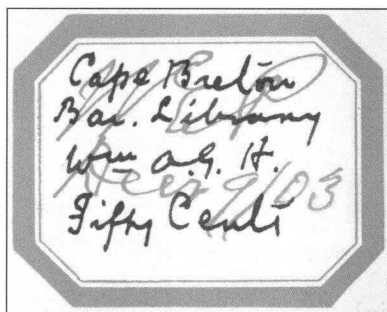 Cape Breton
Bar. Library
Wm A. G. H.
Fifty Cents